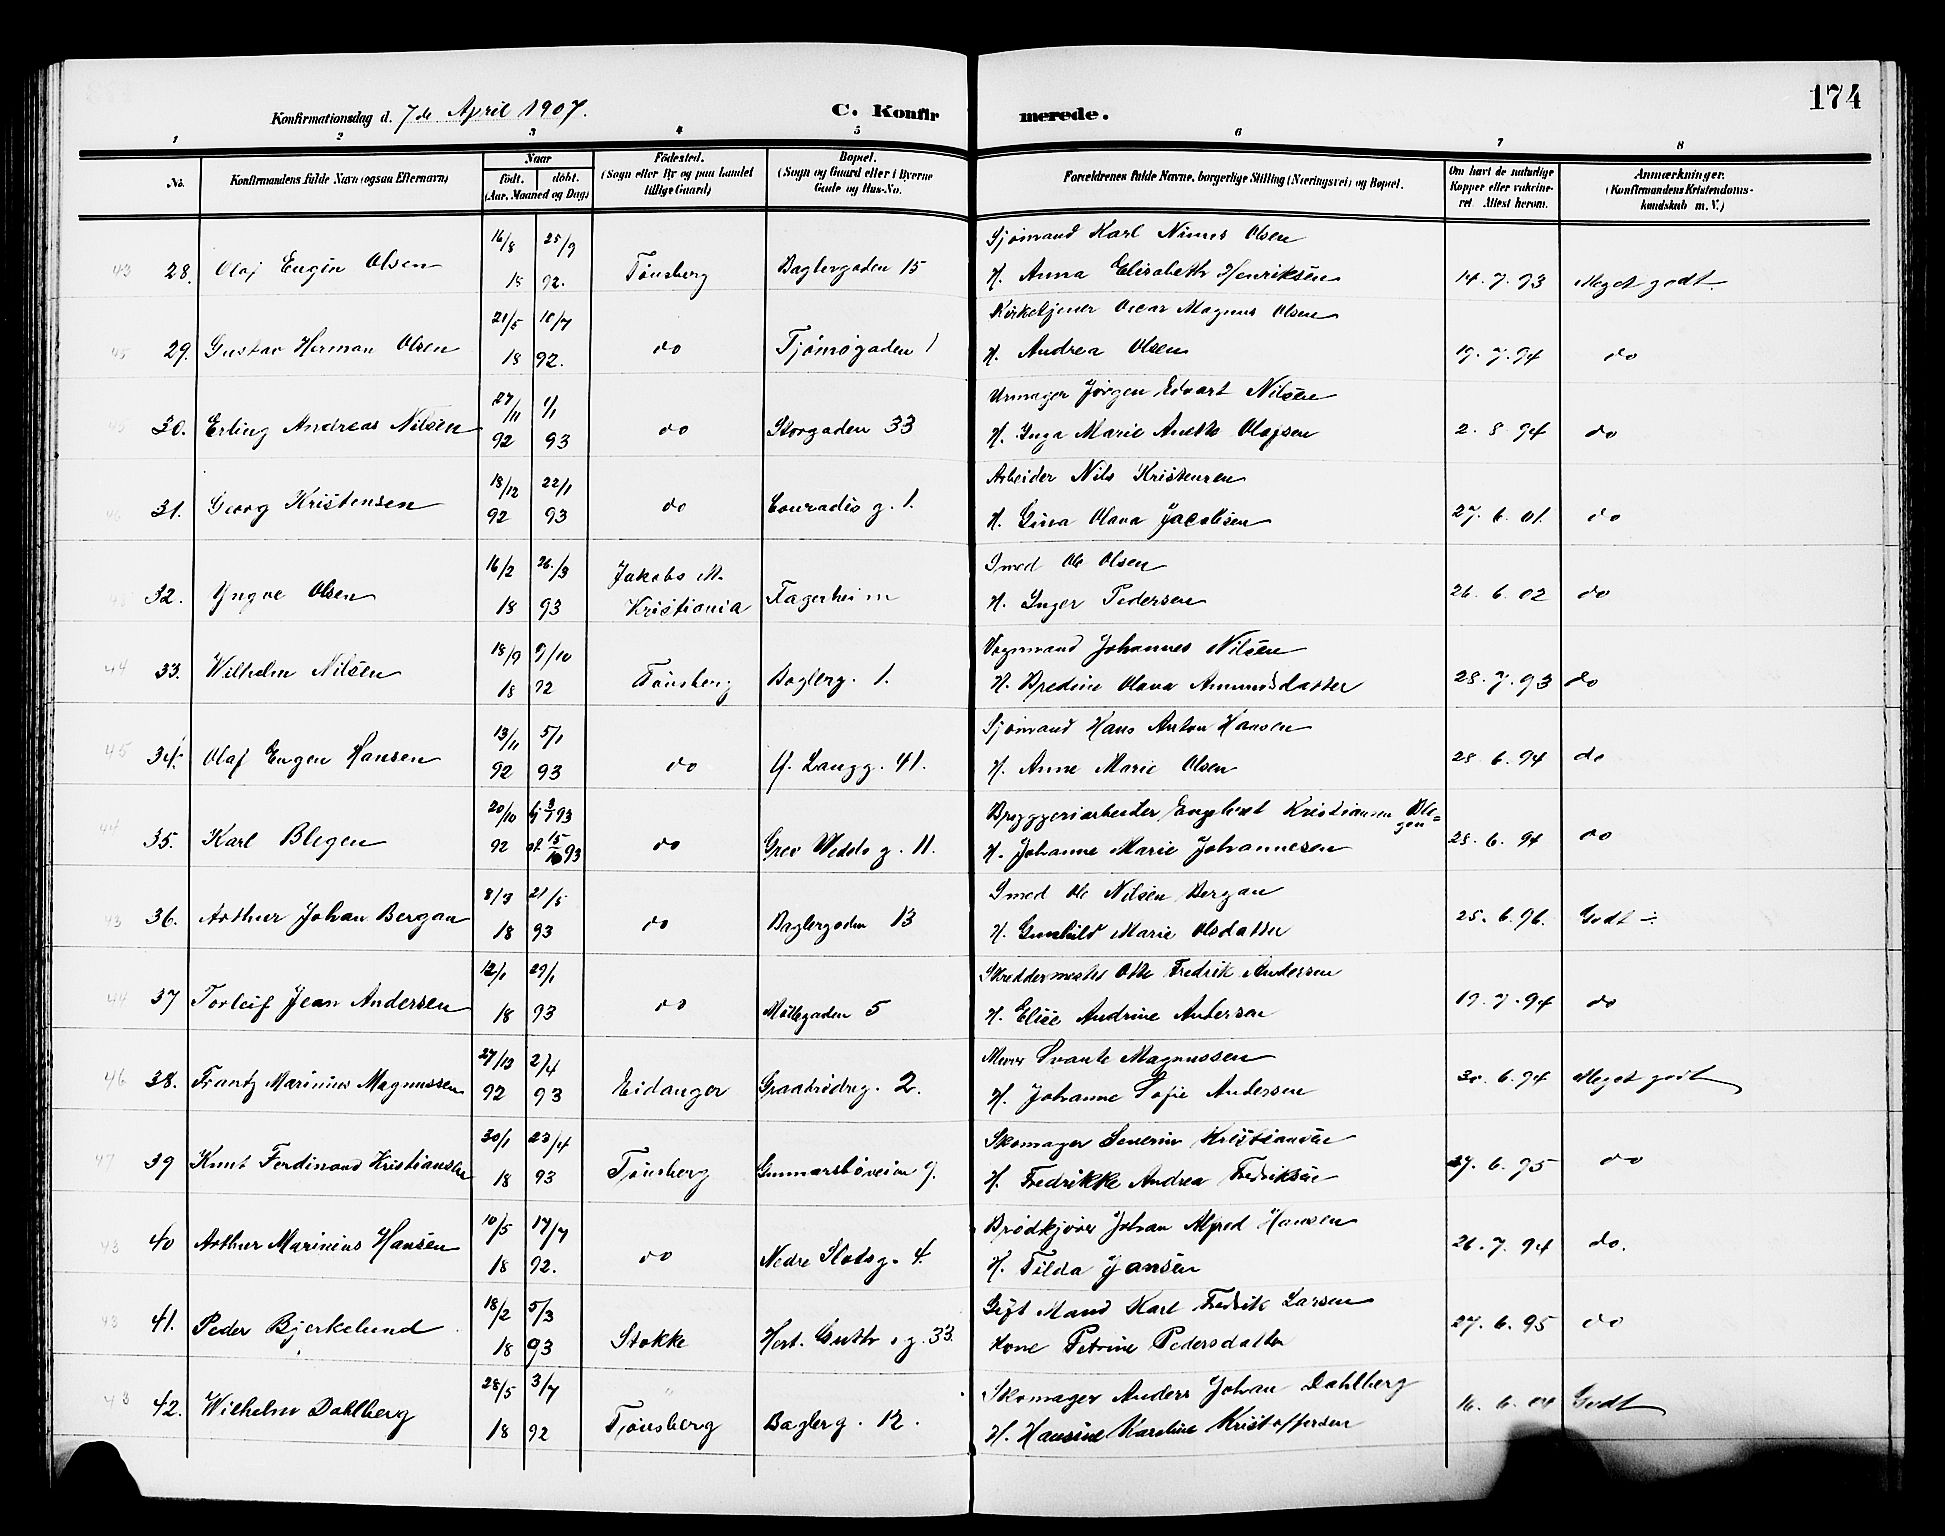 174
Konfirmationsdag d. 7de April 1907.
C. Konfirmerede.
1 2 3 4 5 6 7 8
No.
Konfirmandens fulde Navn (ogsaa Efternavn)
Naar
födt. döbt.
(Aar, Maaned og Dag)
Födested.
(Sogn eller By og paa Landet
tillige Gaard)
Bopæl.
(Sogn og Gaard eller i Byerne
Gade og Hus-No.
Forældrenes fulde Navne, borgerlige Stilling (Næringsvei) og Bopæl.
Om havt de naturlige
Kopper eller vakcine-
ret. Attest herom.
Anmærkninger.
(Konfirmandens Kristendoms-
kundskab m. V.)
16/8 25/9 Sjømand Karl Olsen
43 28. Olaf Eugen Olsen 18 92. Tønsberg Baglergaden 15 H. Anna Elisabeth Henriksen 14.7.93 Meget godt
21/5 10/7 Kirketjener Oscar Magnus Olsen
45 29. Gustav Herman Olsen 18 92. do Tjømøgaden 1 H. Andrea Olsen 19.7.94 do
27/11 1/1 Urmager Jørgen Edvart Nilsen
45 30. Erling Andreas Nilsen 92 93 do Storgaden 33 H. Inga Marie Anette Olafsen 2.8.94 do
18/12 22/1 Arbeider Nils Kristensen
46 31. Georg Kristensen 92 93 do Conradis g. 1. H. Gina Olava Jacobsen 27.6.01. do
16/2 26/3 Jakobs M. Smed Ole Olsen
32. Yngve Olsen 18 93 Kristiania Fagerheim H. Inger Pedersen 26.6.02 do
18/9 9/10 Vognmand Johannes Nilsen
44 33. Wilhelm Nilsen 18 92 Tønsberg Baglerg. 1. H. Bredine Olava Amundsdatter 28.7.93 do
13/11 5/1 Sjømand Hans Anton Hansen
45 34. Olaf Eugen Hansen 92 93 do Ø. Langg. 41. H. Anne Marie Olsen 28.6.94 do
20/10 hj 3/1 93 Bryggeriarbeider Engebret Kristiansen Ble=
gen
44 35. Karl Blegen 92 st. 15/10 93 do Grev Wedels g. 11. H. Johanne Marie Johannesen 28.6.94 do
8/3 21/5 Smed Ole Nilsen Bergan
43 36. Arthur Johan Bergan 18 93 do Baglergaden 13 H. Gunhild Marie Olsdatter 25.6.96. Godt ÷
12/1 29/1 Skreddermester Otto Fredrik Andersen
44 37 Torleif Jean Andersen 18 93 do Møllegaden 5 H. Elise Andrine Andersen 19.7.94 do
27/12 2/4 Murer Svante Magnussen
46 38. Frantz Marinius Magnussen 92 93 Eidanger Graabrødreg. 2. H. Johanne Sofie Andersen 30.6.94 Meget godt
30/1 23/4 Skomager Severin Kristiansen
47 39 Knut Ferdinand Kristiansen 18 93 Tønsberg Gunnarsbøveien 9. H. Fredrikke Andrea Fredriksen 27.6.95 do
10/5 17/7 Brødkjører Johan Alfred Hansen
43 40 Arthur Marinius Hansen 18 92. do Nedre Slotsg. 4. H. Tilda Jansen 26.7.94 do.
18/2 5/3 Gift Mand Karl Fredrik Larsen
43 41. Peder Bjerkelund 18 93 Stokke Hert. Guth. s g. 33. Kone Petrine Pedersdatter 27.6.95 do
28/5 3/7 Skomager Anders Johan Dahlberg
43 42. Wilhelm Dahlberg 18 92 Tønsberg Baglerg. 12. H. Hansine Karoline Kristoffersen 16.6.04 Godt